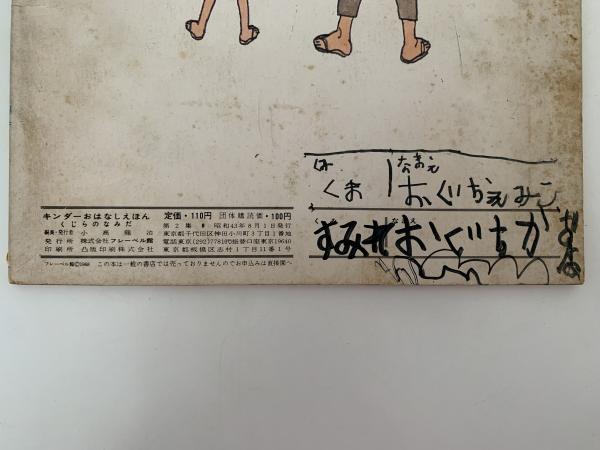 キンダーおはなしえほん 定価・110円 団体購読価・100円
くじらのなみだ 第2集 昭和43年8月1日発行
編集・発行者 東京都千代田区神田小川町3丁目1番地
発行所 株式会社フレーベル館 電話東京(292)7781代 振替口座東京19640
印刷所 凸版印刷株式会社 東京都板橋区志村1丁目11番1号
フレーベル館©1968 この本は一般の書店では売っておりませんのでお申込みは直接園へ
なまえ
くま
すみれ おぐち